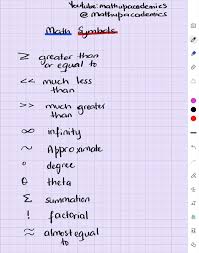 Youtube: mathupacademics
@ mathupacademics
Math Symbols
≥ greater than
or equal to
<< much less
than
>> much greater
than
∞ infinity
~ Approximate
° degree
θ theta
Σ summation
! factorial
≈ almost equal
to